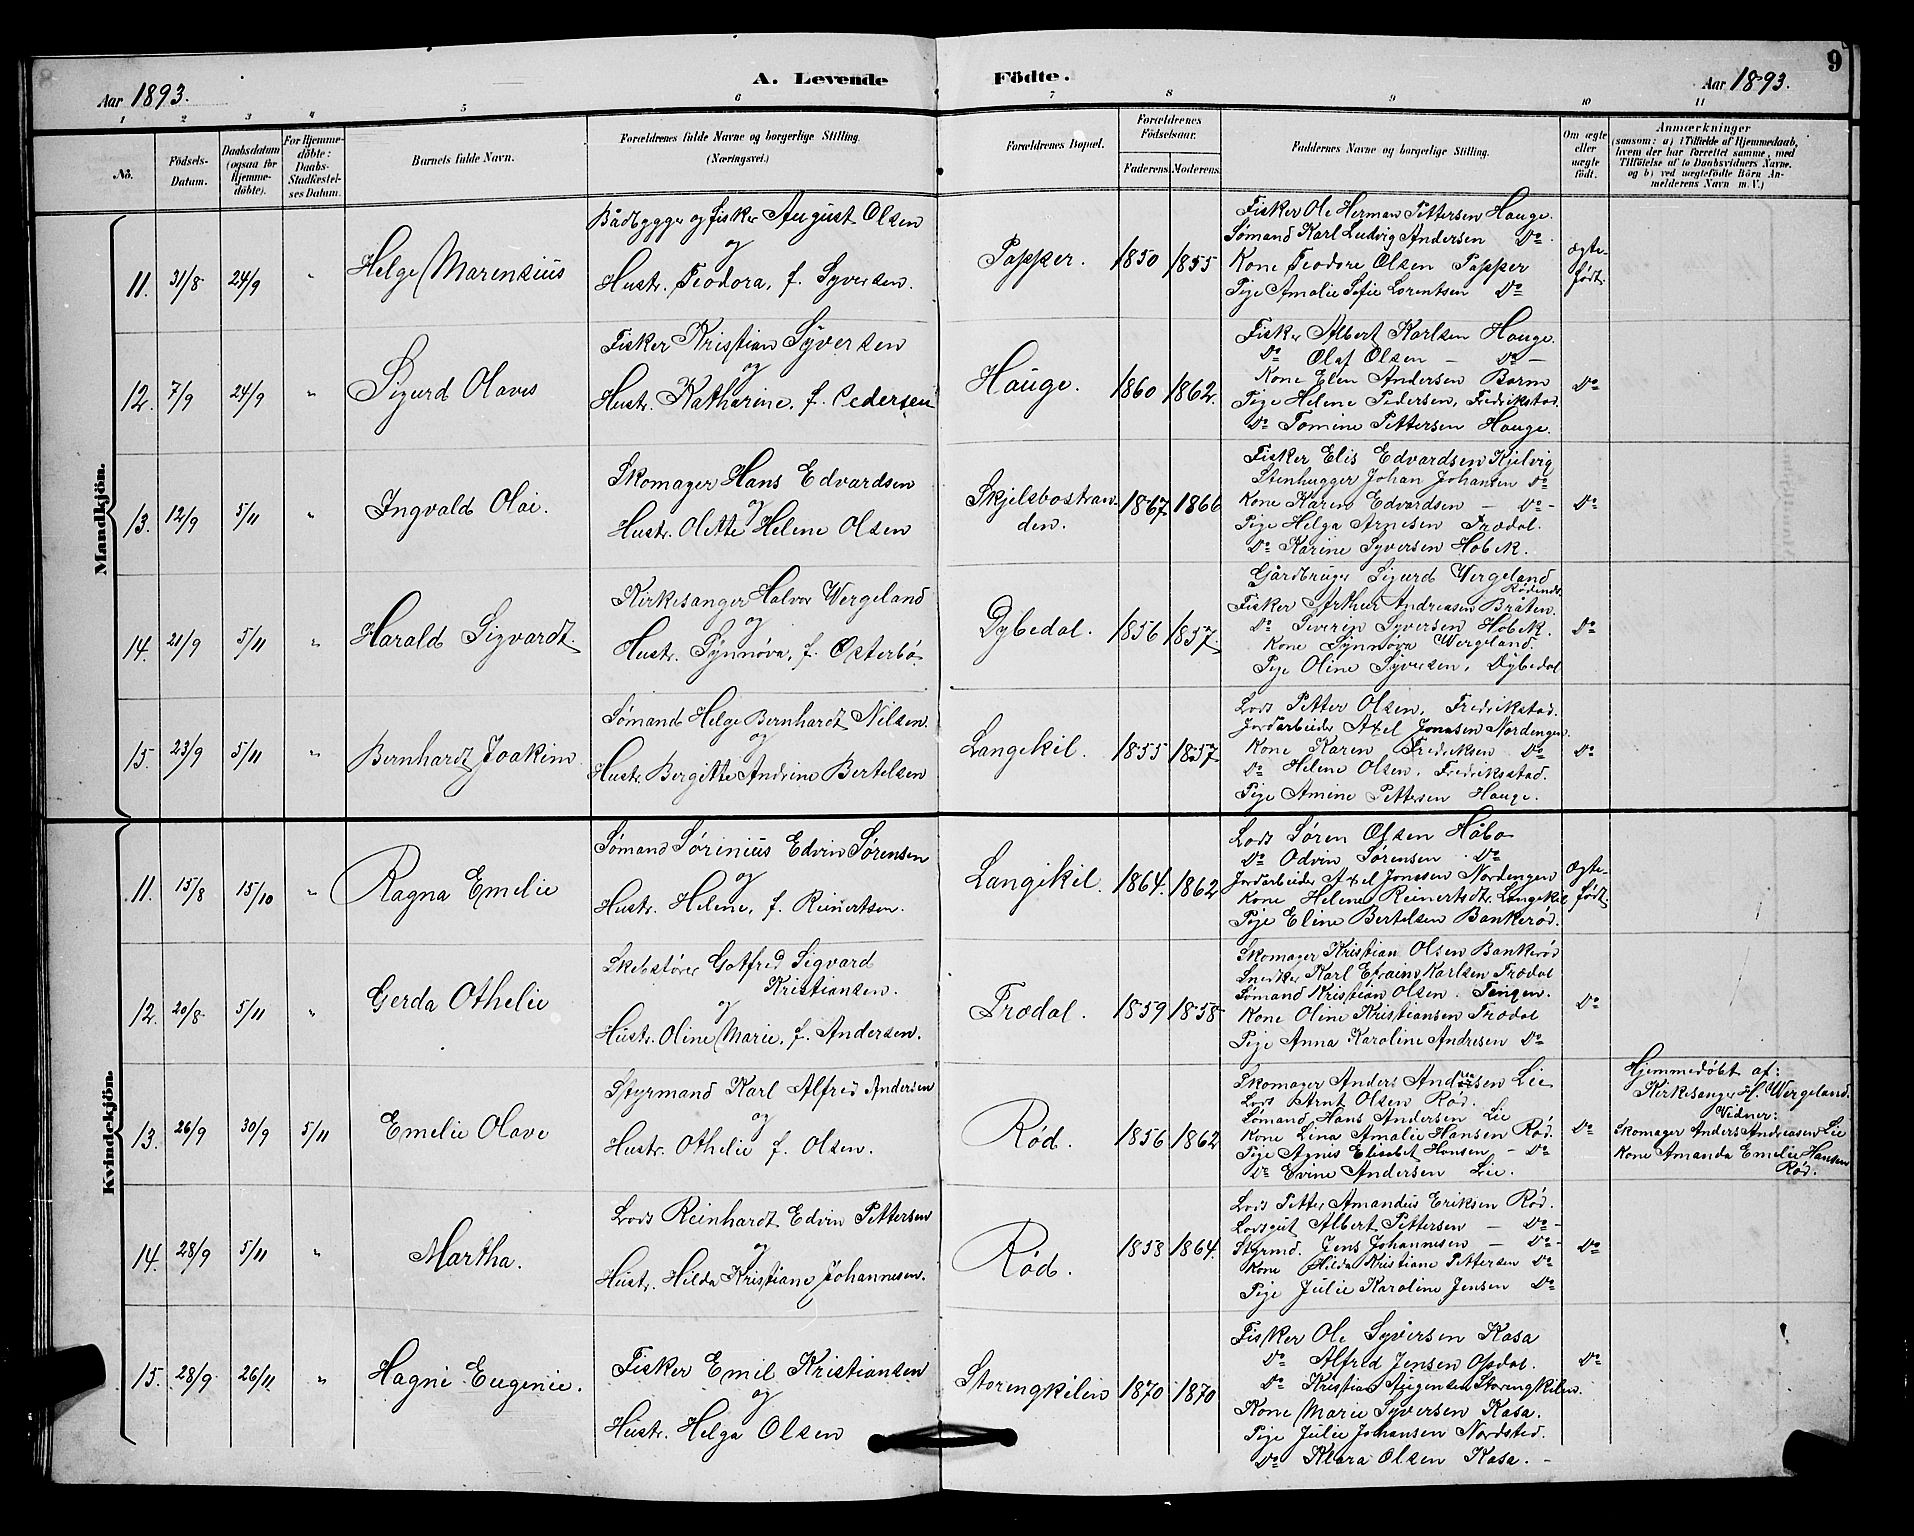 9
A. Levende Födte.
Aar 1893.
Aar 1893.
1 2 3 4 5 6 7 8 9 10 11
No.
Födsels-
Datum.
Daabsdatum
(ogsaa for
Hjemme-
döbte).
For Hjemme-
döbte:
Daabs-
Stadfæstel-
ses Datum.
Barnets fulde Navn.
Forældrenes fulde Navne og borgerlige Stilling.
(Næringsvei.)
Forældrenes Bopæl.
Forældrenes
Födselsaar.
Faderens Moderens
Faddernes Navne og borgerlige Stilling.
Om ægte
eller
uægte
födt.
Anmærkninger
(saasom: a) i Tilfælde af Hjemmedaab,
hvem der har forrettet samme, med
Tilföielse af to Daabsvidners Navne,
og b) ved uægtefödte Börn An-
melderens Navn m. V.)
Mandkjön.
11. 31/8 24/9 "
Helge Marensius
Bådbygger og fisker August Olsen
og
Hustr. Teodora, f. Syversen.
Papper.
1850 1855
Fisker Ole Herman Pettersen Hauge.
Sømand Karl Ludvig Andersen Do.
Kone Teodore Olsen Papper
Pige Amalie Sofie Lorentsen Do
Ægte-
født.
12. 7/9 24/9 "
Sigurd Olaves
Fisker Kristian Syversen
og
Hustr. Katharine, f. Pedersen
Hauge.
1860 1862.
Fisker Albert Karlsen Hauge.
Do Olaf Olsen — Do —
Kone Elen Andersen Borm
Pige Helene Pedersen, Fredrikstad.
Do Tomine Pettersen Hauge.
Do
13. 12/9 5/11 "
Ingvald Olai.
Skomager Hans Edvardsen
og
Hustr. Olette Helene Olsen
Skjelsbostran-
den.
1867 1866
Fisker Elis Edvardsen Kjelvig
Stenhugger Johan Johansen Do
Kone Karen Edvardsen — Do -
Pige Helga Arnesen Trodal.
Do Karine Syversen Hobek.
Do
14. 21/9 5/11 "
Harald Sigvardt.
Kirkesanger Halvor Wergeland
og
Hustr. Synnøva, f. Østerbø
Dybedal.
1856 1857.
Gårdbruger Sigurd Wergeland
Fisker Arthur Andreasen Bråten.
Do Severin Syversen Hobek.
Kone Synnøva Wergeland.
Pige Oline Syversen, Dybedal
Do
15. 23/9 5/11 "
Bernhardt Joakim
Sømand Helge Bernhardt Nilsen.
og
Hustr. Bergitte Andrine Bertelsen
Langekil.
1855 1857.
Lods Petter Olsen, Fredrikstad.
Jordarbeider Axel Jonasen Nordengen.
Kone Karen Fredriksen Do
Do Helene Olsen, Fredriksstad.
Pige Amine Pettersen Hauge.
Do
Kvindekjön.
11. 15/8 15/10 "
Ragna Emelie
Sømand Sørinius Edvin Sørensen
og
Hustr. Helene, f. Reinertsen.
Langekil.
1864. 1862
Lods Søren Olsen Håbo
Do Odvin Sørensen Do
Jordarbeider Axel Jonssen Nordengen
Kone Helene Reinertsdtr. Langekil
Pige Eline Bertelsen Bankerød.
Ægte-
født.
12. 20/8 5/11 "
Gerda Othelie
Skibsfører Gotfred Sigvard
Kristiansen.
og
Hustr. Oline Marie, f. Andersen.
Trodal.
1859 1858
Skomager Kristian Olsen Bankerød
Snedker Karl Efraim Karlsen Trodal
Sømand Kristian Olsen. Tangen.
Kone Oline Kristiansen Trodal
Pige Anna Karoline Andresen Do
Do
13. 26/9 30/9 5/11
Emelie Olave
Styrmand Karl Alfred Andersen
og
Hustr. Othelie f. Olsen.
Rød.
1856 1862
Skomager Anders Andreasen Lie
Lods Arnt Olsen Rød.
Sømand Hans Andersen Lie
Kone Lina Amalie Hansen Rød.
Pige Agnis Elisabet Hansen — Do
Do Evine Andersen Lie.
Do
Hjemmedøbt af:
Kirkesanger H. Wergeland.
Vidner:
Skomager Anders Andreasen Lie
Kone Amanda Emelie Hansen
Rød.
14. 28/9 5/11 "
Martha.
Lods Reinhardt Edvin Pettersen
og
Hustr. Hilda Kristiane Johannesen.
Rød.
1858 1864.
Lods Petter Amandus Eriksen Rød.
Lodsgut Albert Pettersen — Do -
Styrmd. Jens Johannesen — Do -
Kone Hilda Kristiane Pettersen Do
Pige Julie Karoline Jensen Do
Do
15. 28/9 26/11 "
Hagni Eugenie.
Fisker Emil Kristiansen
og
Hustr. Helga Olsen
Storengkilen
1870 1870
Fisker Ole Syversen Kasa
Do Alfred Jensen Opdal.
Do Kristian Jørgensen Storengkilen.
Kone Marie Syversen Kasa.
Pige Julie Johansen Nordsted.
Do Klara Olsen Kasa. -
Do